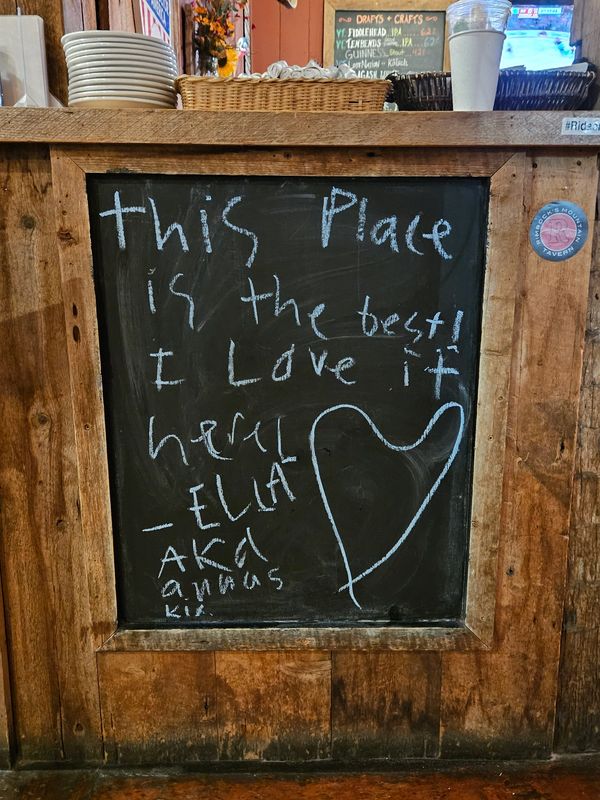 DRAFTS + CRAFTS
VT. FIDDLEHEAD IPA
VT. TEN BENDS IPA
GUINNESS Stout
#Rid
RIMROCK'S MOUNTAIN
TAVERN
this Place
is the best!
I Love it
here!
_ELLA
AKA
annus
kix.